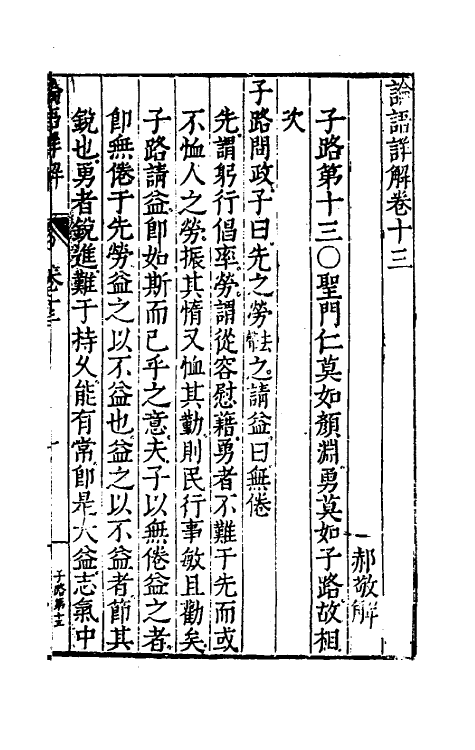 論語詳解卷十三
郝敬解
子路第十三○聖門仁莫如顏淵勇莫如子路故相
次
子路問政子曰先之勞去聲之請益曰無倦
先謂躬行倡率勞謂從容慰藉勇者不難于先而或
不恤人之勞振其惰又恤其勤則民行事敏且勸矣
子路請益卽如斯而已乎之意夫子以無倦益之者
卽無倦于先勞益之以不益也益之以不益者節其
銳也勇者銳進難于持久能有常卽是大益志氣中
論語詳解
卷十三
子路第十三